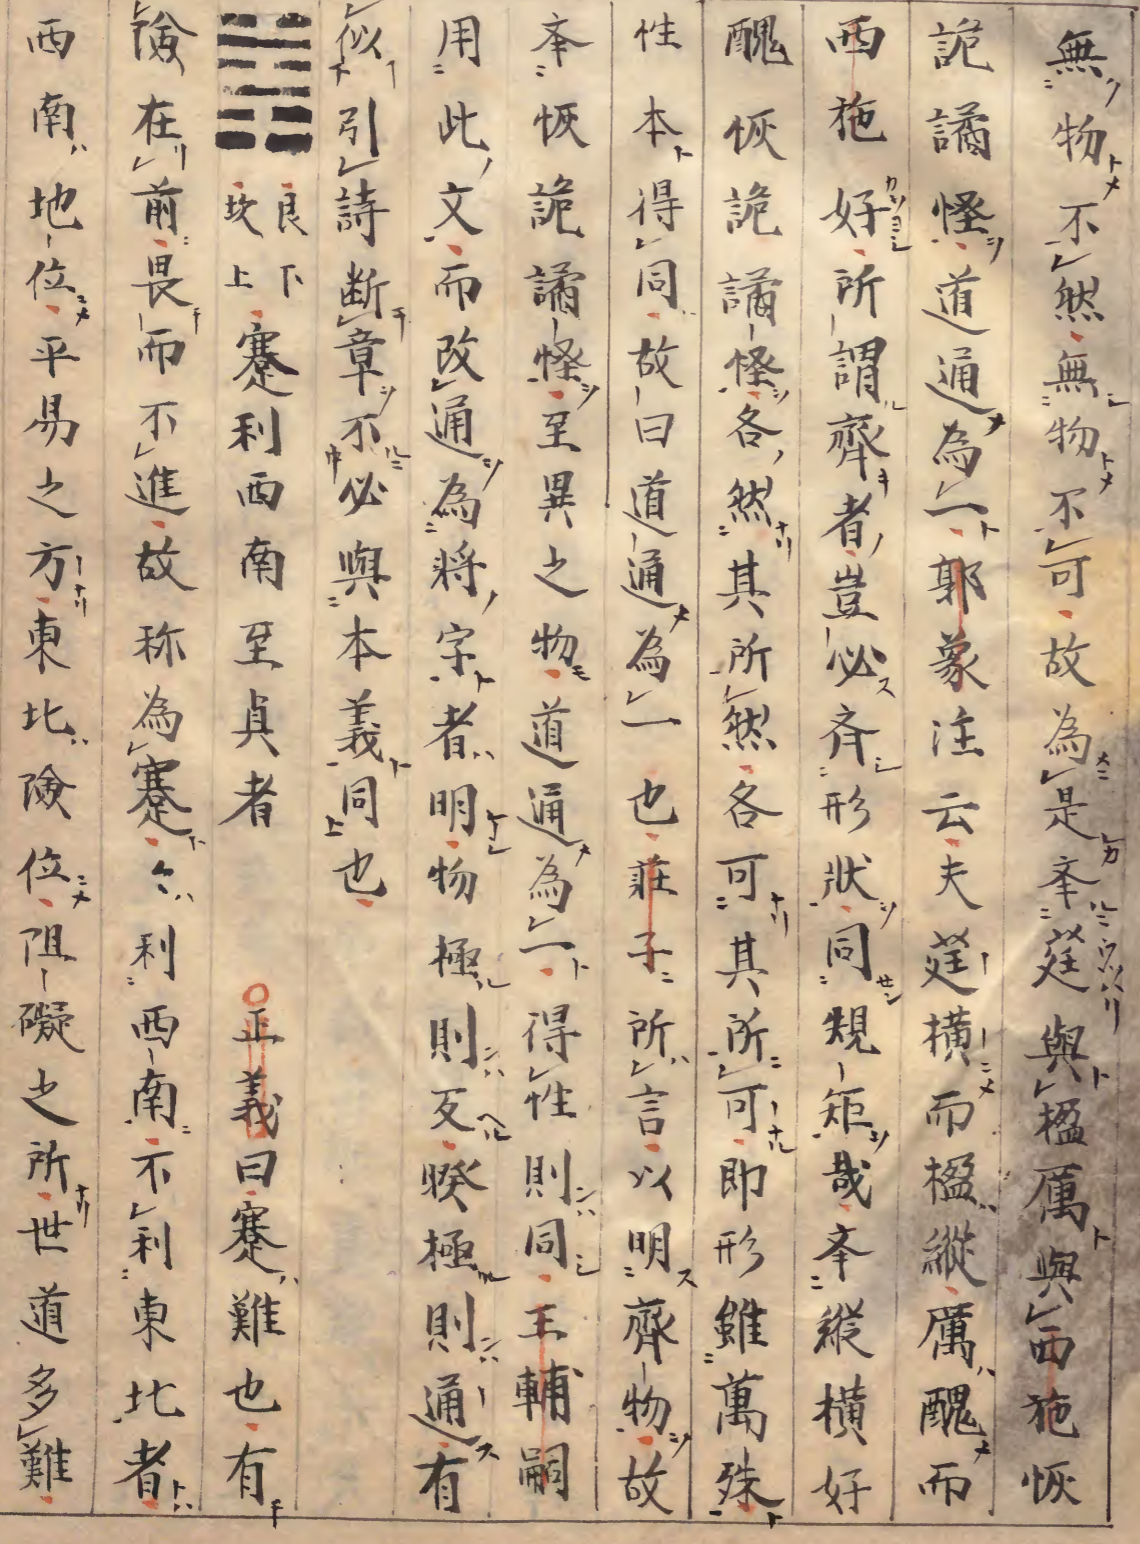 無物不然無物不可故為是夲莛與楹厲與西施恢
詭譎怪道通為一郭象注云夫莛橫而楹縱厲醜而
西施好所謂齊者豈必斉形狀同規矩哉夲縱橫好
醜恢詭譎怪各然其所然各可其所可即形雖萬殊
性本得同故曰道通為一也莊子所言以明齊物故
夲恢詭譎怪至異之物道通為一得性則同王輔嗣
用此文而改通為將字者明物極則反睽極則通有
似引詩断章不必與本義同也
䷦艮下坎上蹇利西南至貞者 正義曰蹇難也有
險在前畏而不進故称為蹇々利西南不利東北者
西南地位平易之方東北險位阻礙之所世道多難